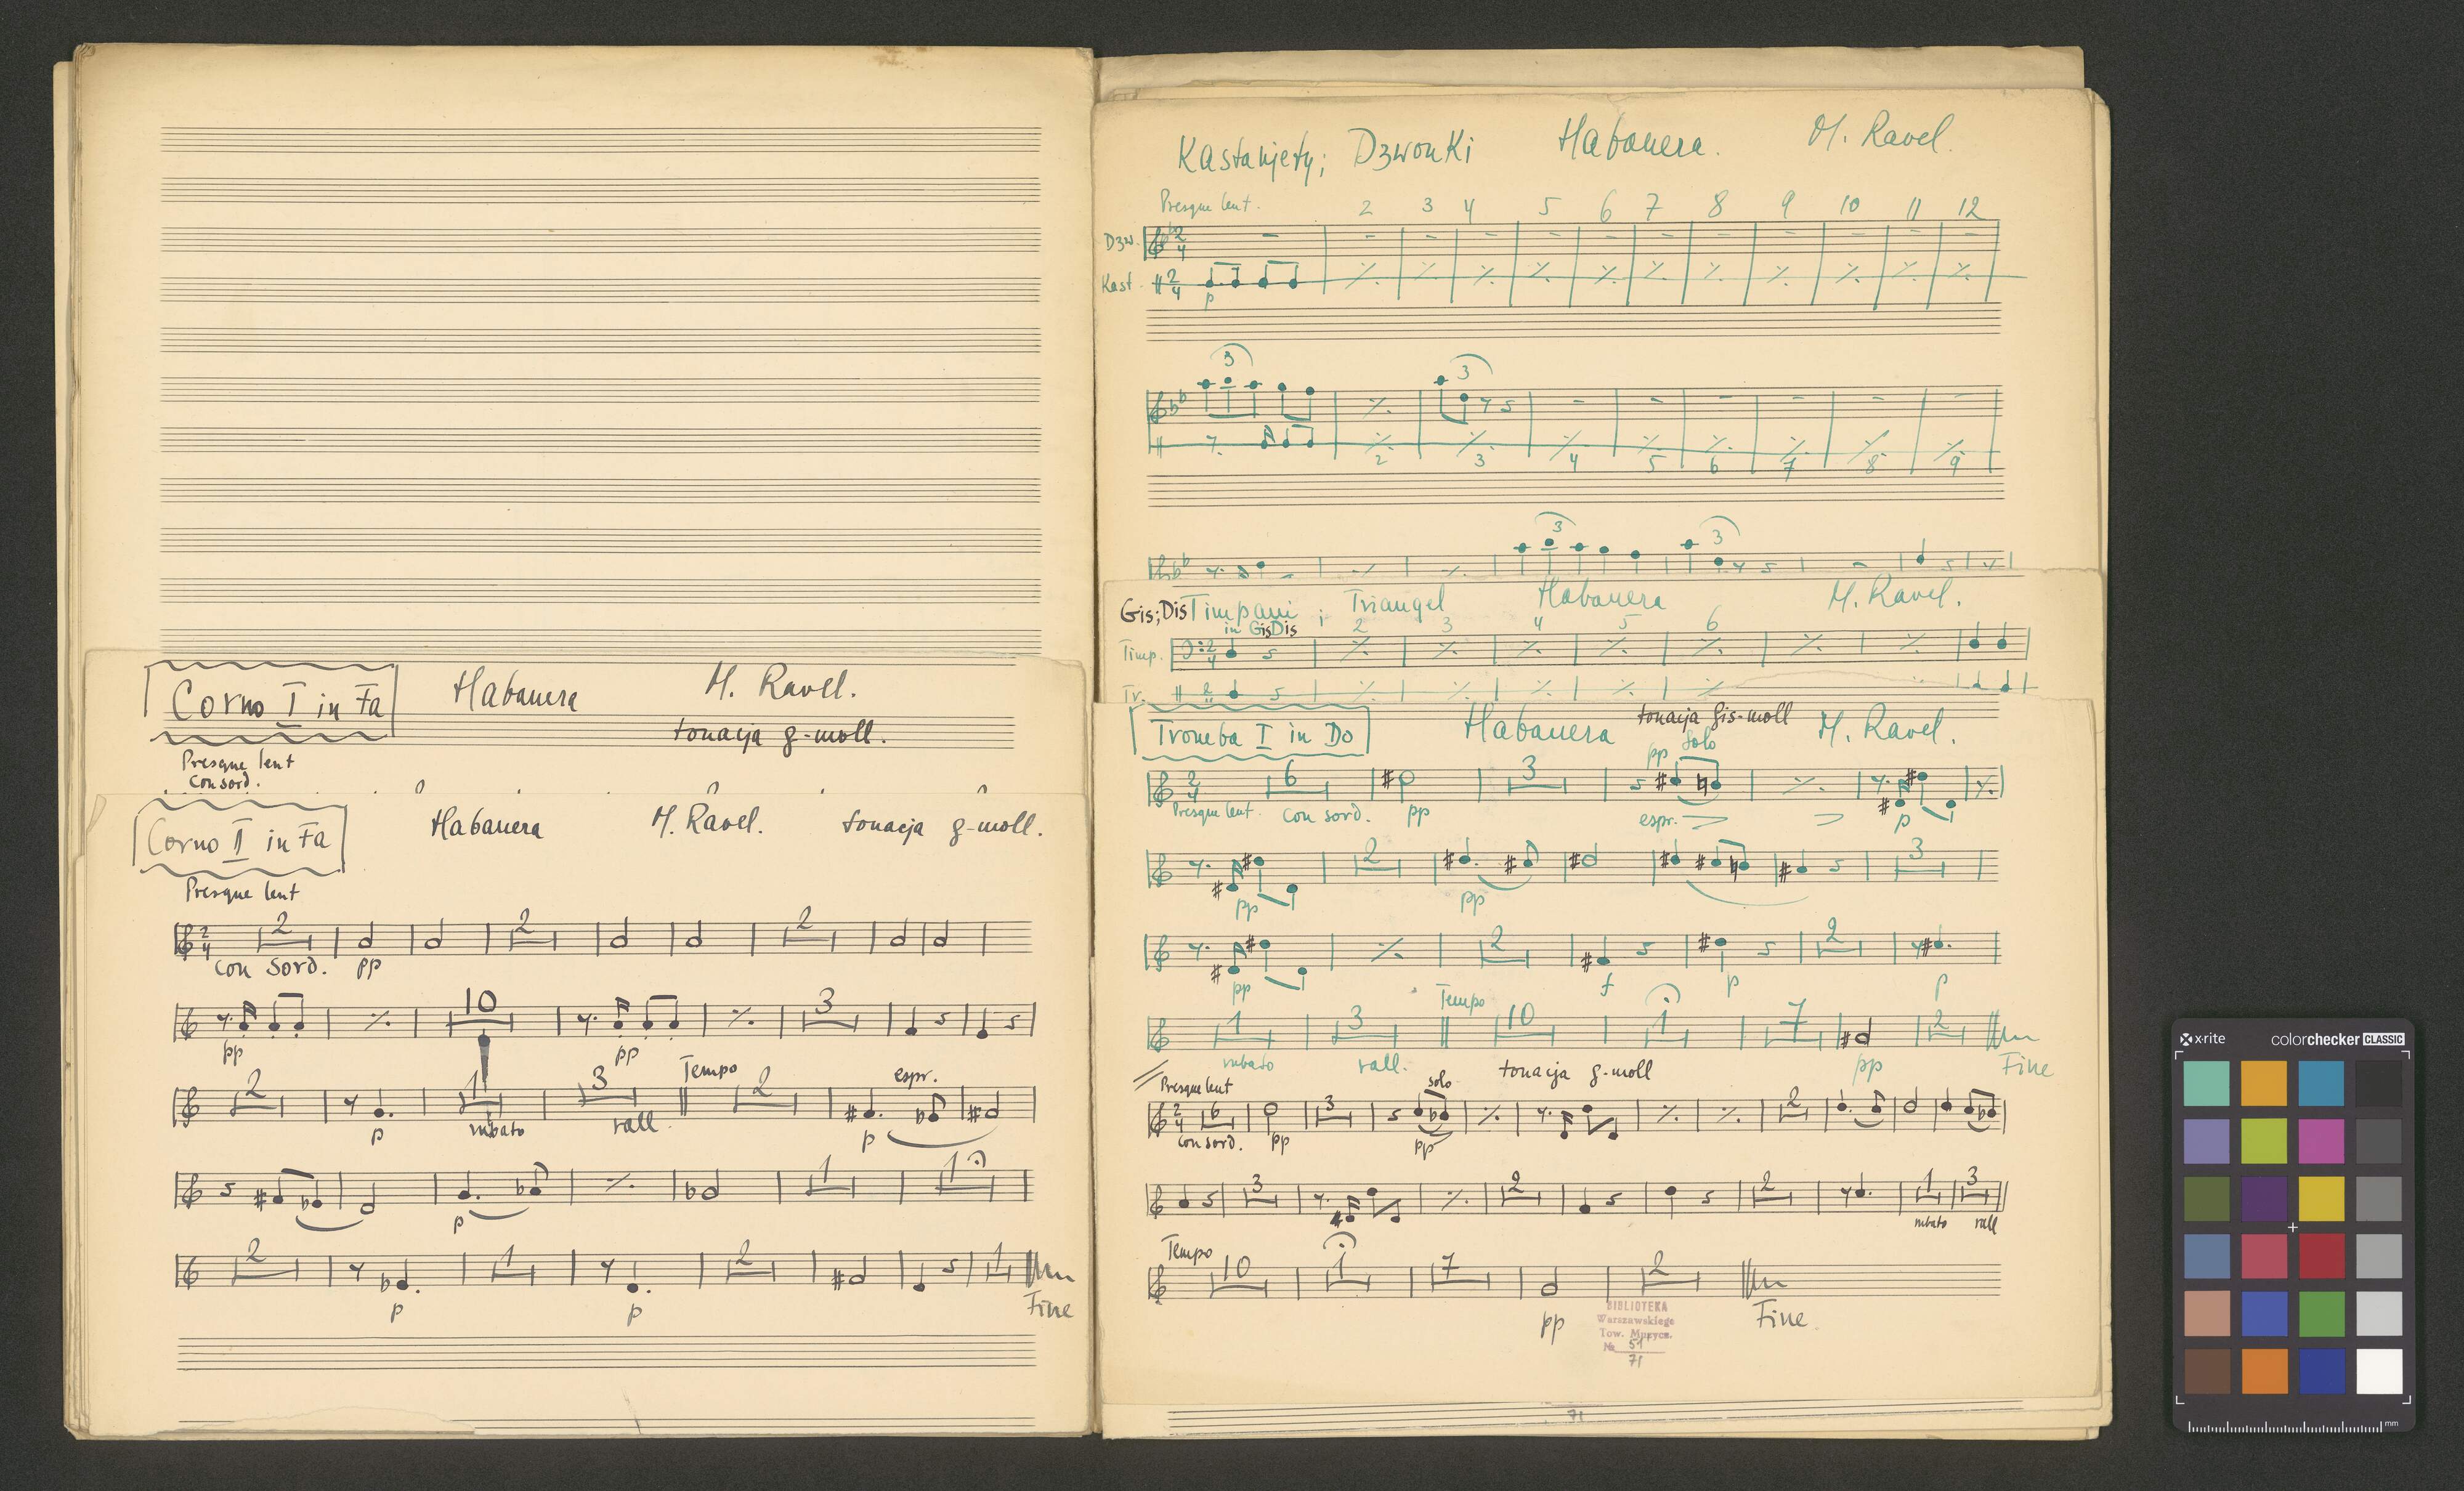 Corno I in Fa Habanera M. Ravel.
tonacja g-moll.
Presque lent
con sord.
Corno II in Fa Habanera M. Ravel. tonacja g-moll.
Presque lent
2 4 2 2 2
con sord. pp
10 3
pp pp
2 1 3 Tempo 2 espr.
p rubato rall. p
1 1
p
2 1 2 1
p p Fine
Kastanjety; Dzwonki Habanera. M. Ravel.
Presque lent. 2 3 4 5 6 7 8 9 10 11 12
Dzw. 2 4
Kast. 2 4
p
3 3
2 3 4 5 6 7 8 9
3 3
Gis;Dis Timpani; Triangel Habanera M. Ravel.
in GisDis 2 3 4 5 6
Timp. 2 4
Tr. 2 4
Tromba I in Do Habanera tonacja Gis-moll M. Ravel.
pp solo
2 4 6 3
Presque lent. con sord. pp espr. p
2 3
pp pp
2 2
pp f p p
Tempo
1 3 10 1 7 2
rubato rall. tonacja g-moll pp Fine
Presque lent solo
2 4 6 3 2
con sord. pp pp
3 2 2 1 3
rubato rall
Tempo
10 1 7 2
pp Fine
BIBLIOTEKA
Warszawskiego
Tow. Muzycz.
№ 51
71
71
x-rite colorchecker CLASSIC
mm